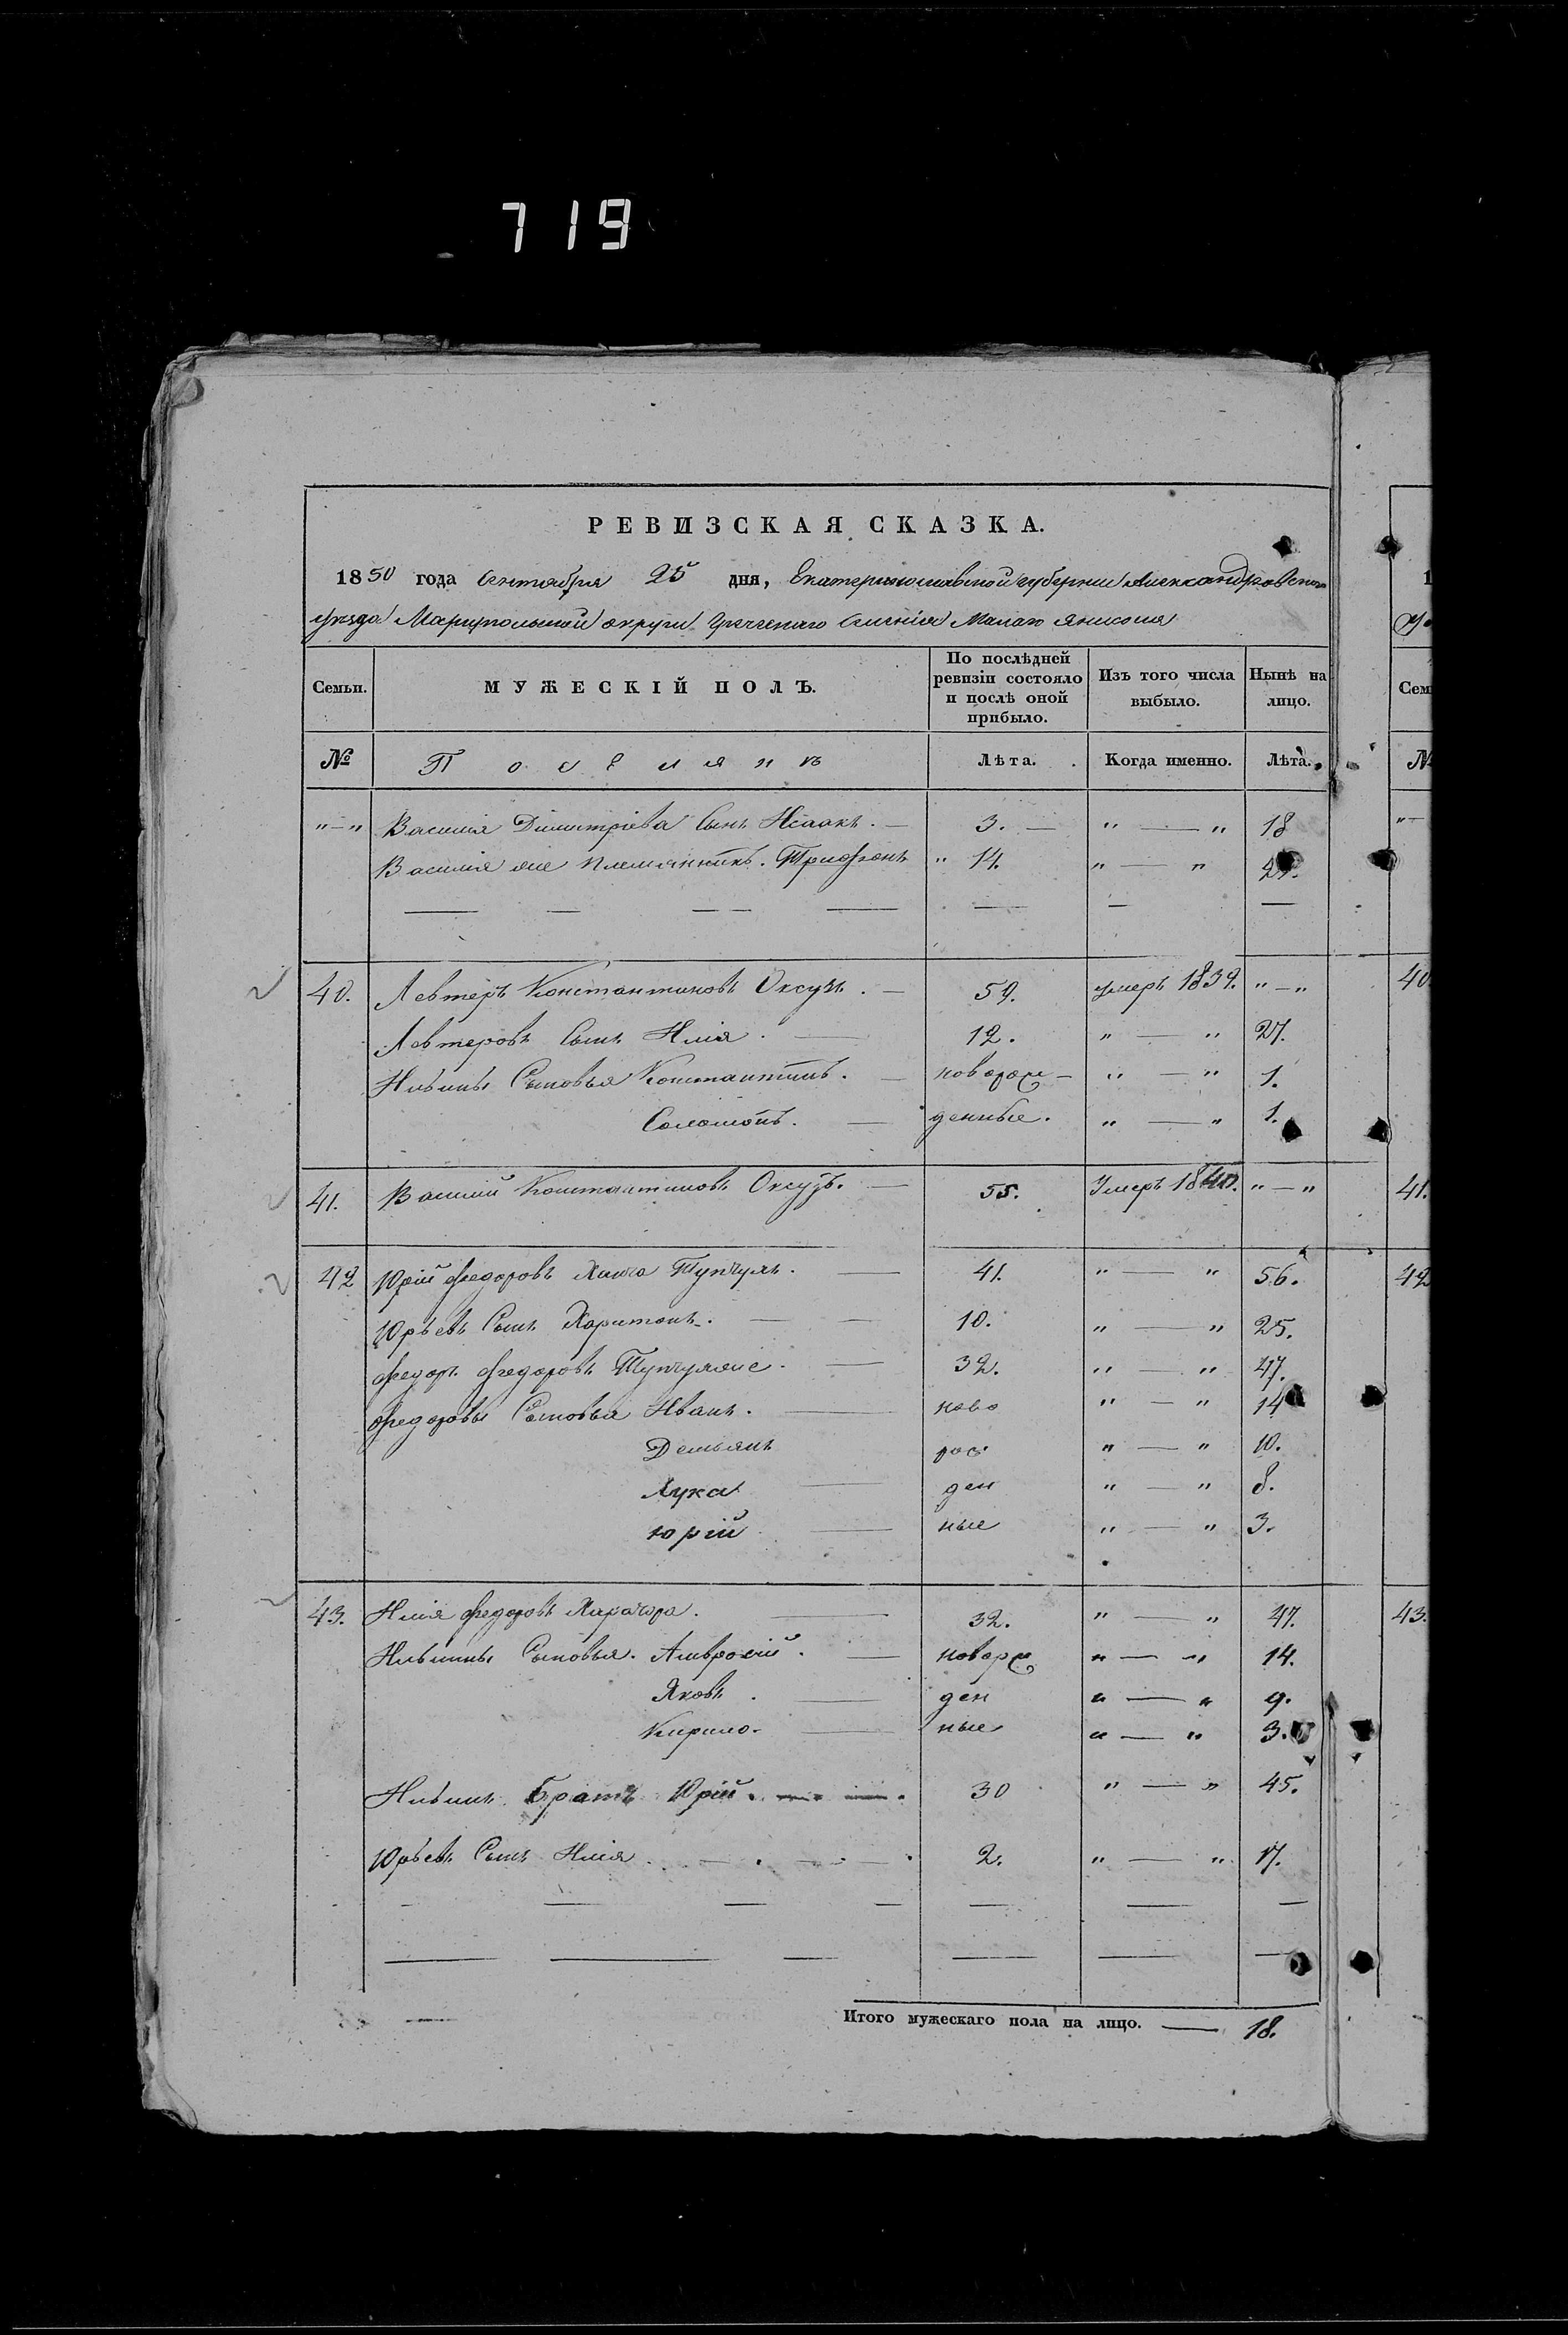 719
РЕВИЗСКАЯ СКАЗКА.
1850 года Сентября 25 дня, Екатеринославской губернии Александровскаго
уѣзда Маріупольской округи Греческаго селенія Малаго Янисоля
Семьи. МУЖЕСКІЙ ПОЛЪ. По послѣдней ревизіи состояло и послѣ оной прибыло. Изъ того числа выбыло. Нынѣ на лицо.
№ Поселянъ Лѣта. Когда именно. Лѣта.
"—" Василія Димитріева Сынъ Исаакъ. — 3. — " — " 18
Василія же племянникъ. Трифонъ " 14. " — "
40. Левтеръ Константиновъ Оксузъ. — 59. умеръ 1839. "—"
Левтеровъ Сынъ Илія. — 12. " — " 27.
Ильины Сыновья Константинъ. — новорож- " — " 1.
Соломонъ. — денные. " — " 1.
41. Василій Константиновъ Оксузъ. — 55. Умеръ 1840. "—"
42 Юрій Федоровъ Хаджи — 41. " — " 56.
Юрьевъ Сынъ Харитонъ. — 10. " — " 25.
Федоръ Федоровъ — 32. " — " 47.
Федоровы Сыновья Иванъ. — ново " — " 14
Демьянъ рож " — " 10.
Лука — ден " — " 8.
Юрій — ные " — " 3.
43. Илія Федоровъ Харахора. — 32. " — " 47.
Ильины Сыновья. Амвросій. — новорж " — " 14.
Яковъ. — ден " — " 9.
Кирило. — ные " — " 3.
Ильинъ Братъ Юрій. — 30 " — " 45.
Юрьевъ Сынъ Илія. — 2. " — " 17.
Итого мужескаго пола на лицо. — 18.
40
41.
42
43.